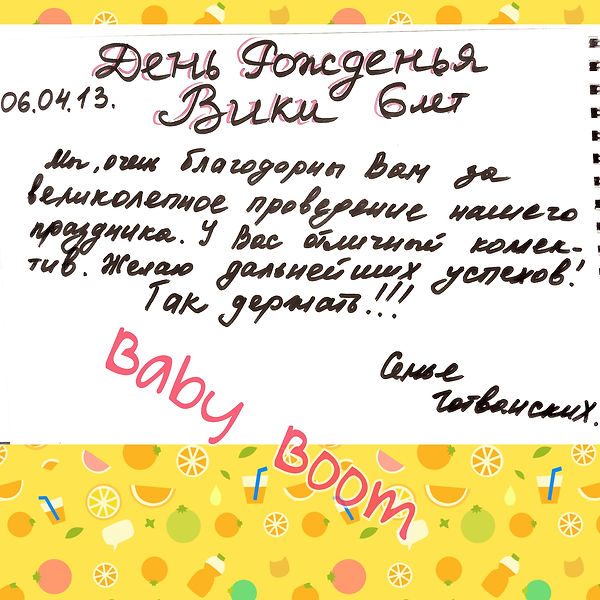 День Рожденья
06.04.13.
Вики 6 лет
Мы, очень благодарны Вам за
великолепное проведение нашего
праздника. У Вас отличный комек-
тив. Желаю дальнейших успехов!
Так держать!!!
Семье
Baby Boom